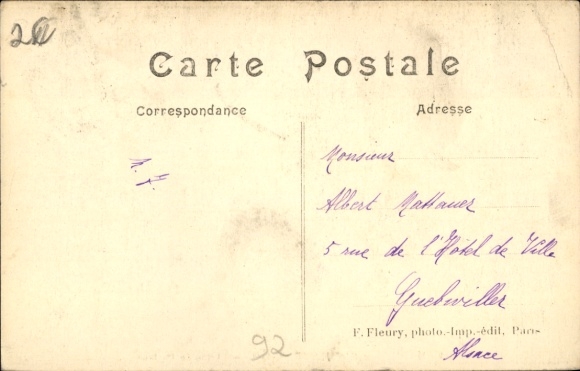 Carte Postale
Correspondance
Adresse
Monsieur
Albert Mattauer
5 rue de l'Hôtel de Ville
Guebwiller
F. Fleury, photo.-Imp.-édit, Paris
Alsace
92.